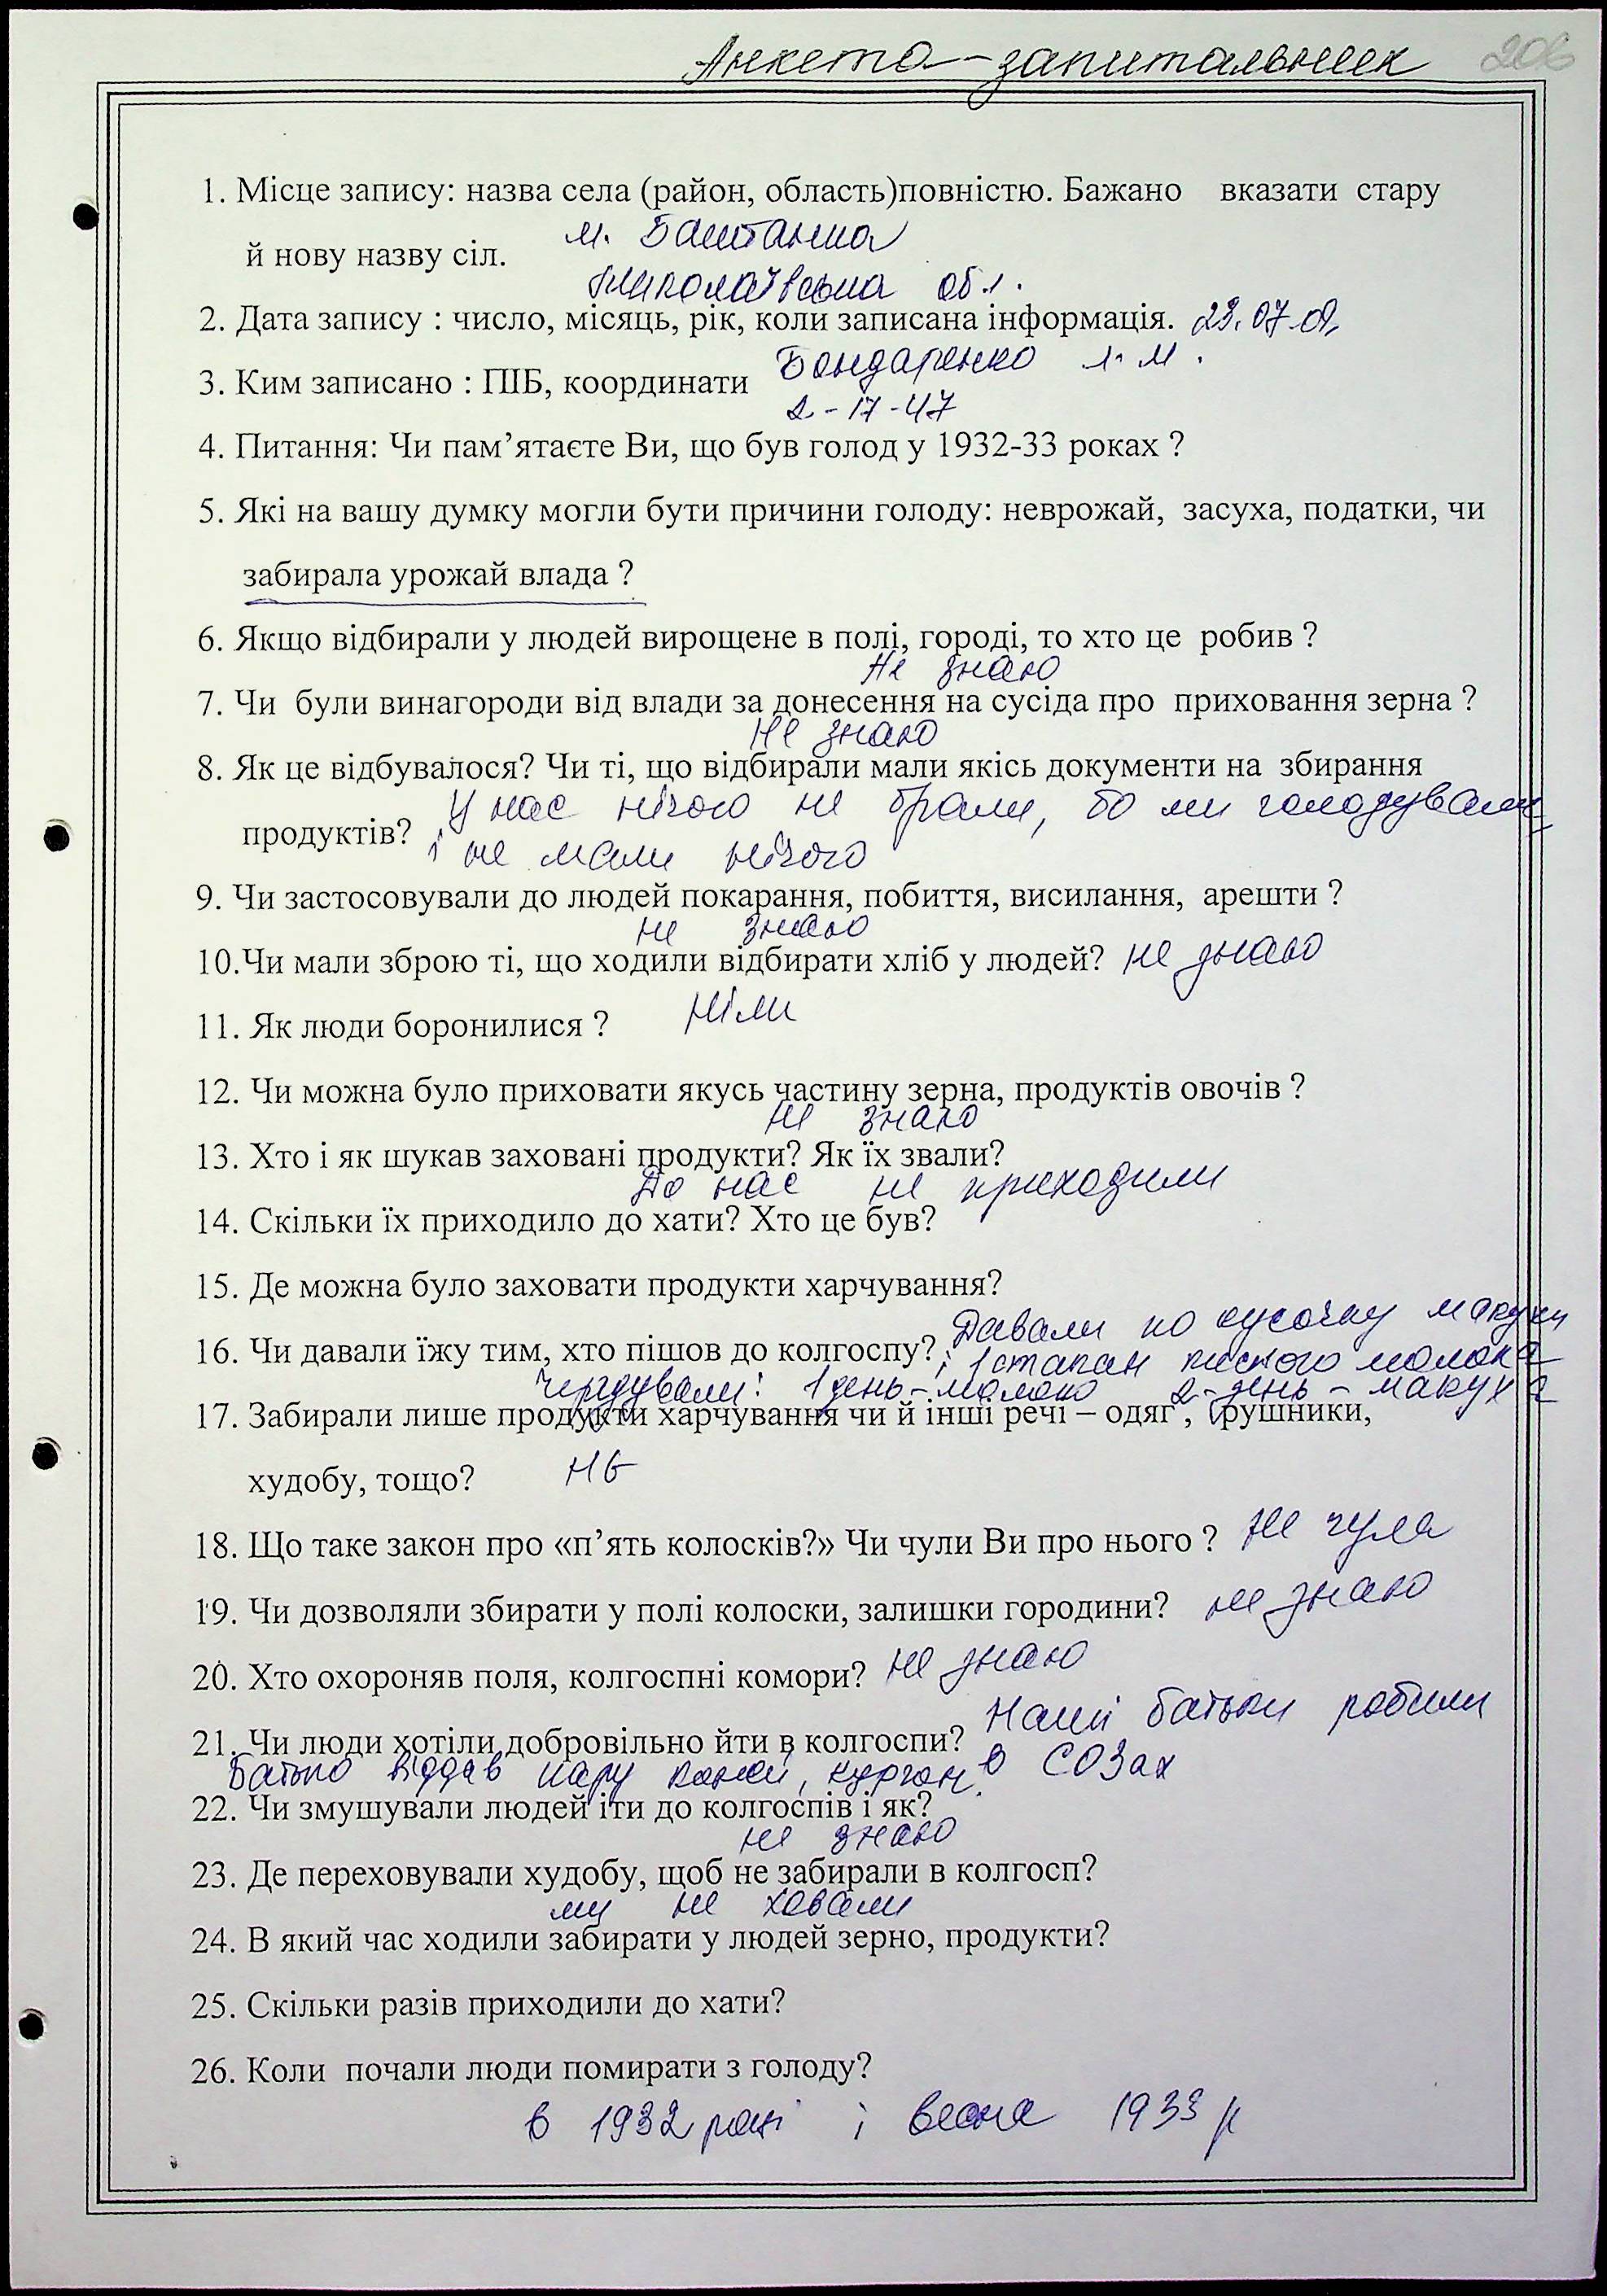 Анкета-запитальник 206
1. Місце запису: назва села (район, область)повністю. Бажано вказати стару
м. Баштанка
й нову назву сіл.
Миколаївська обл.
2. Дата запису : число, місяць, рік, коли записана інформація. 23.07.09.
Бондаренко Л. М.
3. Ким записано : ПІБ, координати
2-17-47
4. Питання: Чи пам’ятаєте Ви, що був голод у 1932-33 роках ?
5. Які на вашу думку могли бути причини голоду: неврожай, засуха, податки, чи
забирала урожай влада ?
6. Якщо відбирали у людей вирощене в полі, городі, то хто це робив ?
Не знаю
7. Чи були винагороди від влади за донесення на сусіда про приховання зерна ?
Не знаю
8. Як це відбувалося? Чи ті, що відбирали мали якісь документи на збирання
У нас нічого не брали, бо ми голодували
продуктів?
і не мали нічого
9. Чи застосовували до людей покарання, побиття, висилання, арешти ?
не знаю
10.Чи мали зброю ті, що ходили відбирати хліб у людей? не знаю
11. Як люди боронилися ? Ніяк
12. Чи можна було приховати якусь частину зерна, продуктів овочів ?
Не знаю
13. Хто і як шукав заховані продукти? Як їх звали?
До нас не приходили
14. Скільки їх приходило до хати? Хто це був?
15. Де можна було заховати продукти харчування?
Давали по кусочку макухи
16. Чи давали їжу тим, хто пішов до колгоспу? і 1 стапан писного молока
Чергували: 1 день – молоко 2 - день – макуха
17. Забирали лише продукти харчування чи й інші речі – одяг , рушники,
худобу, тощо? Не
18. Що таке закон про «п’ять колосків?» Чи чули Ви про нього ? Не чула
19. Чи дозволяли збирати у полі колоски, залишки городини? не знаю
20. Хто охороняв поля, колгоспні комори? не знаю
Наші батьки робили
21. Чи люди хотіли добровільно йти в колгоспи? в СОЗах
Батько віддав пару коней,
22. Чи змушували людей іти до колгоспів і як?
не знаю
23. Де переховували худобу, щоб не забирали в колгосп?
ми не ховали
24. В який час ходили забирати у людей зерно, продукти?
25. Скільки разів приходили до хати?
26. Коли почали люди помирати з голоду?
в 1932 році і весна 1933 р